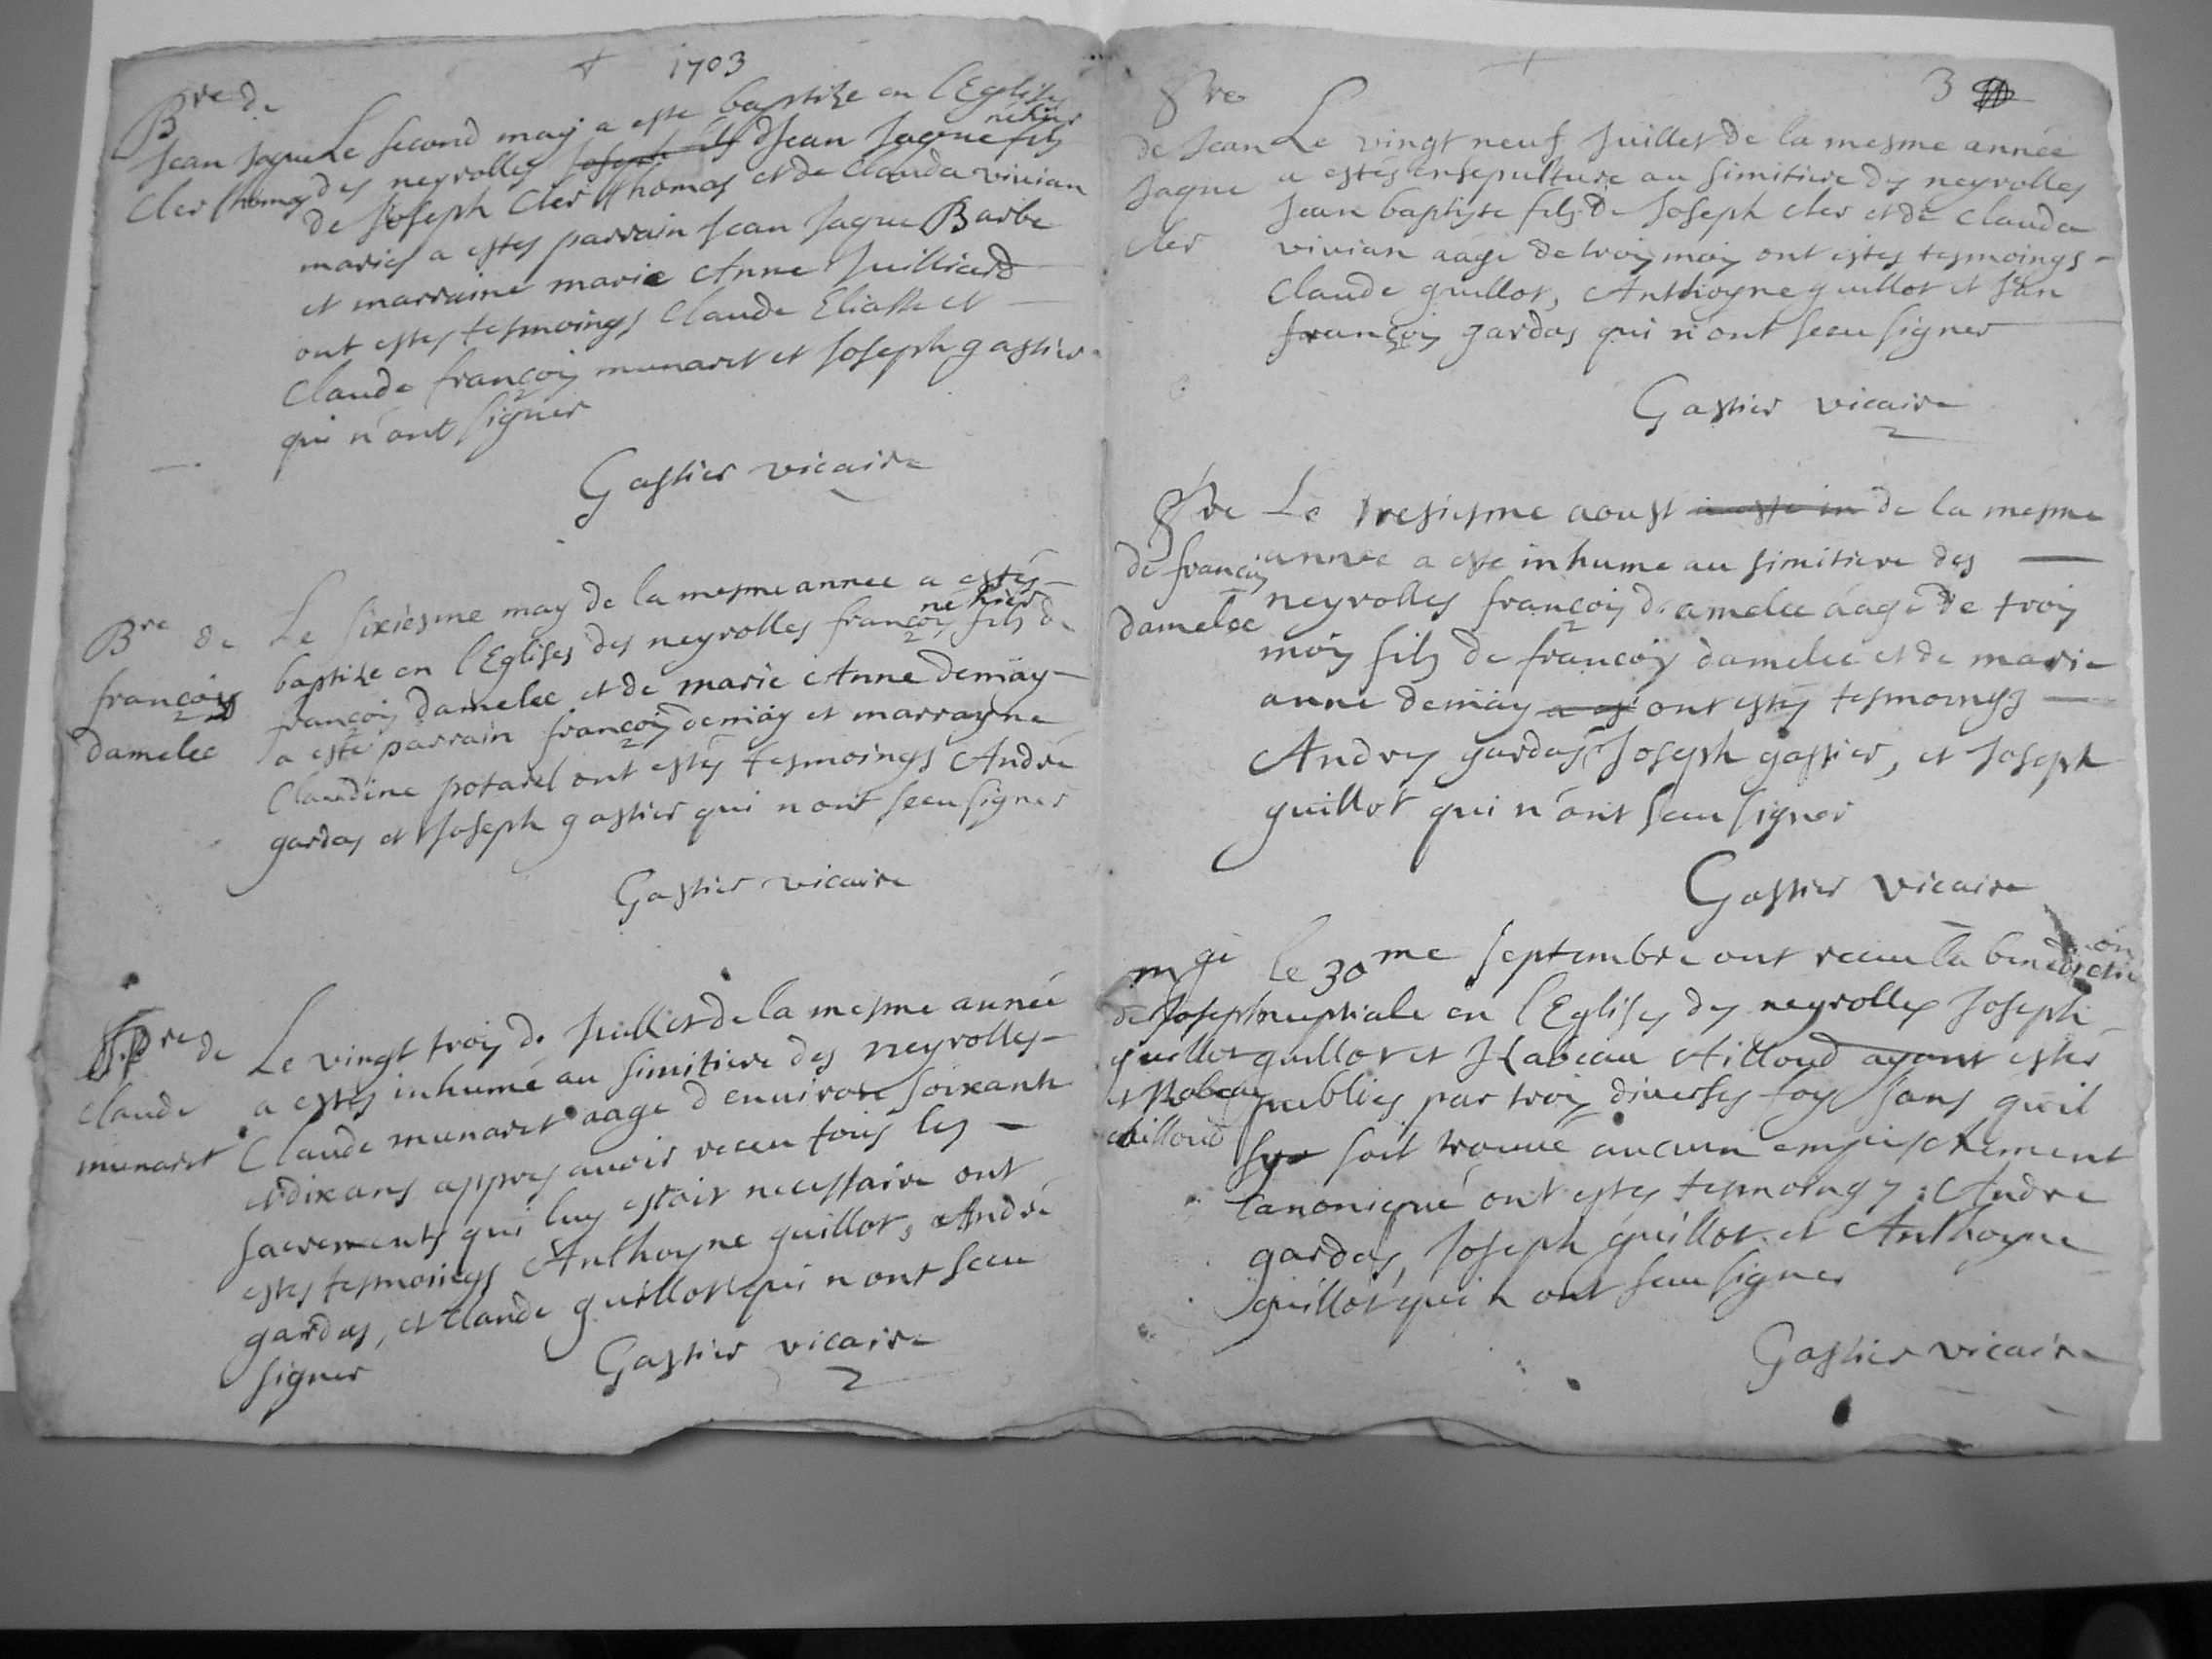 1703
Bre de
Jean Jaque
Cler thomas
Le second may a este baptize en l'Eglises
des neyrolles Joseph fils d Jean Jaque né hier fils
de Joseph Cler thomas et de Clauda vivian
mariés a estes parrain Jean Jaque Barbe
et marraine marie Anne Juilliard
ont estes tesmoings Claude Eliasse et
Claude francois munaret et Joseph gastier
qui n'ont signer
Gastier vicaire
Bre de
francois
damelee
Le sixiesme may de la mesme annee a estés
baptize en l'Eglises des neyrolles francois né hier fils de
francois damelee et de marie Anne demäy
a esté parrain francois demäy et marrayne
Claudine potarel ont estés tesmoings André
gardas et Joseph gastier qui n ont sceu signer
Gastier vicaire
Spre de
Claude
munaret
Le vingt trois de Juillet de la mesme année
a estés inhumé au simitiere des neyrolles
Claude munaret aage d environt soixante
et dix ans appres avoir receu touts les
sacrements qui luy estoit necessaire ont
estes tesmoings Anthoyne guillot, André
gardas, et Claude guillot qui n ont sceu
signer
Gastier vicaire
3
Spre
de Jean
Jaque
cler
Le vingt neuf Juillet de la mesme année
a estés ensepulture au simitiere des neyrolles
Jean baptiste fils de Joseph cler et de Clauda
vivian aagé de trois mois ont estes tesmoings
Claude guillot, Anthoyne guillot et Jean
francois gardas qui n'ont sceu signer
Gastier vicaire
Spre
de francois
damelee
Le tresiesme aoust a este in de la mesme
annee a este inhume au simitiere des
neyrolles francois d'amelee äagé de trois
mois fils de francoïs damelee et de marie
anne demäy a es ont estés tesmoings
Andres gardas, Joseph gastier, et Joseph
guillot qui n'ont sceu signer
Gastier vicaire
mge
de Joseph
guillot
et Ysabeau
ailloud
le 30me septembre ont receu la benediction
nuptiale en l'Eglises des neyrolles Joseph
guillot et Ysabeau Ailloud ayant estés
publiés par trois diverses foys sans qu'il
sye soit trouvé aucun empeschement
Canonique ont estes tesmoings Andre
gardas, Joseph guillot et Anthoyne
guillot qui n ont sceu signer
Gastier vicaire